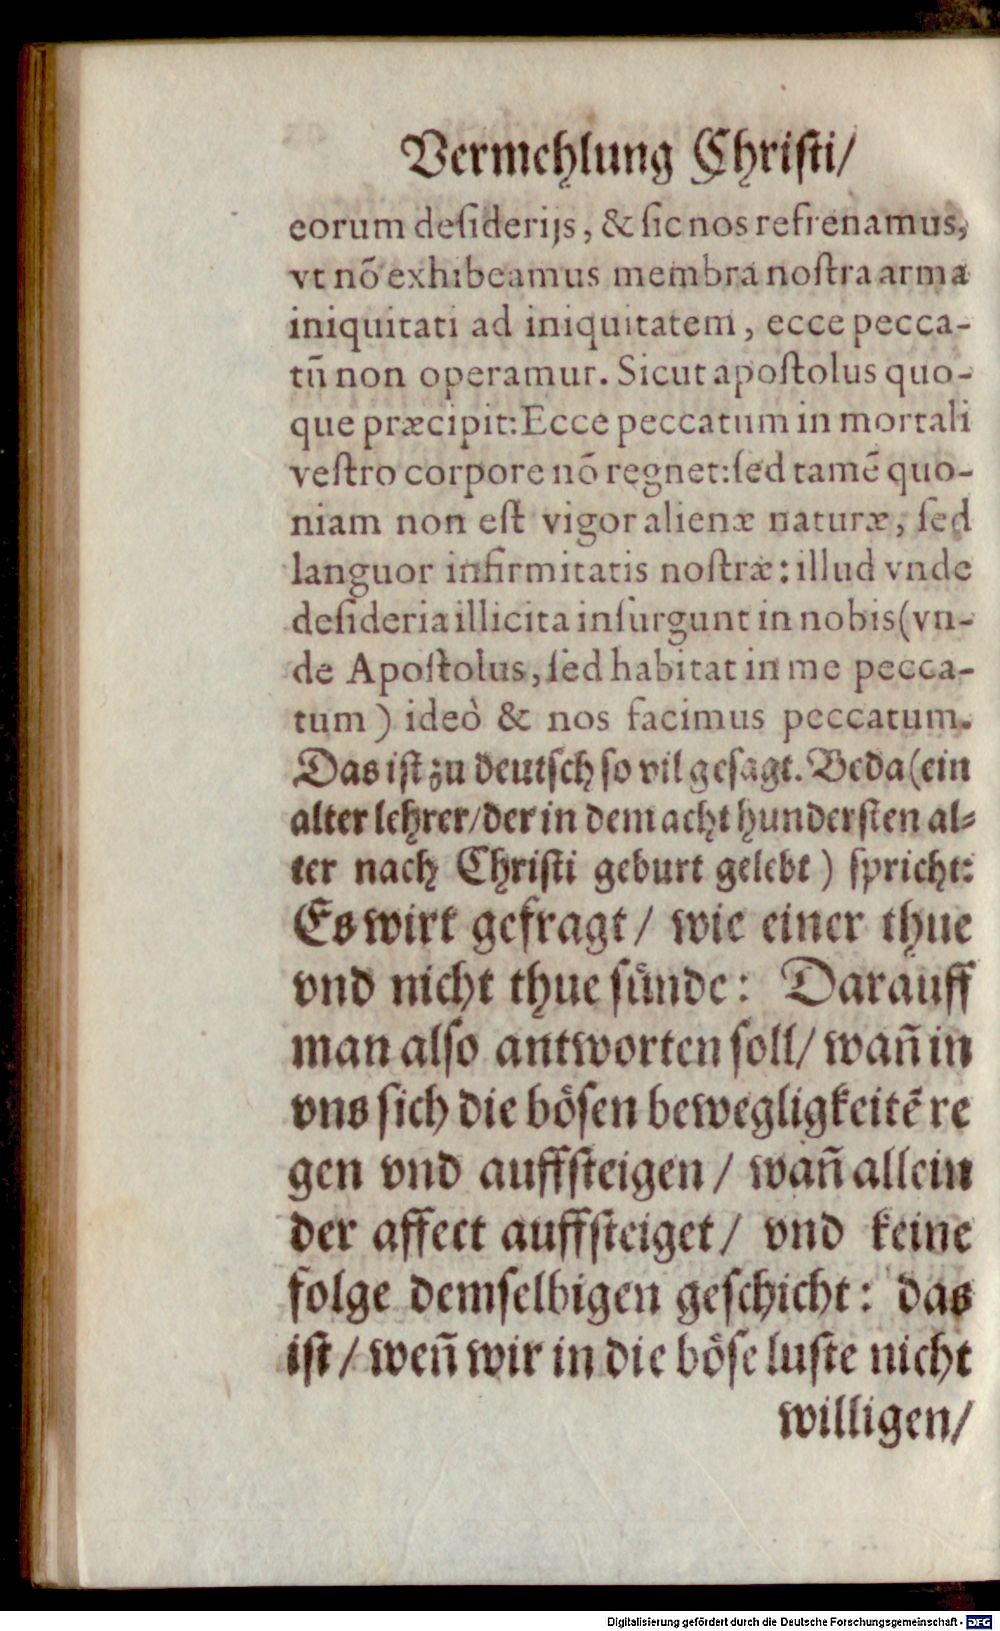 Vermehlung Christi/
eorum deſiderijs, & ſic nos refrenamus,
vt nō exhibeamus membra noſtra arma
iniquitati ad iniquitatem, ecce pecca-
tū non operamur. Sicut apoſtolus quo-
que præcipit: Ecce peccatum in mortali
veſtro corpore nō regnet: ſed tamē quo-
niam non eſt vigor alienæ naturæ, ſed
languor infirmitatis noſtræ: illud vnde
deſideria illicita inſurgunt in nobis (vn-
de Apoſtolus, ſed habitat in me pecca-
tum) ideò & nos facimus peccatum.
Das iſt zu deutſch ſo vil geſagt. Beda (ein
alter lehrer/ der in dem acht hunderſten al-
ter nach Chriſti geburt gelebt) ſpricht:
Es wirt gefragt/ wie einer thue
vnd nicht thue ſünde: Darauff
man alſo antworten ſoll/ wañ in
vns ſich die böſen bewegligkeitē re
gen vnd auffſteigen/ wañ allein
der affect auffſteiget/ vnd keine
folge demſelbigen geſchicht: das
iſt/ weñ wir in die böſe luſte nicht
willigen/
Digitalisierung gefördert durch die Deutsche Forschungsgemeinschaft - DFG